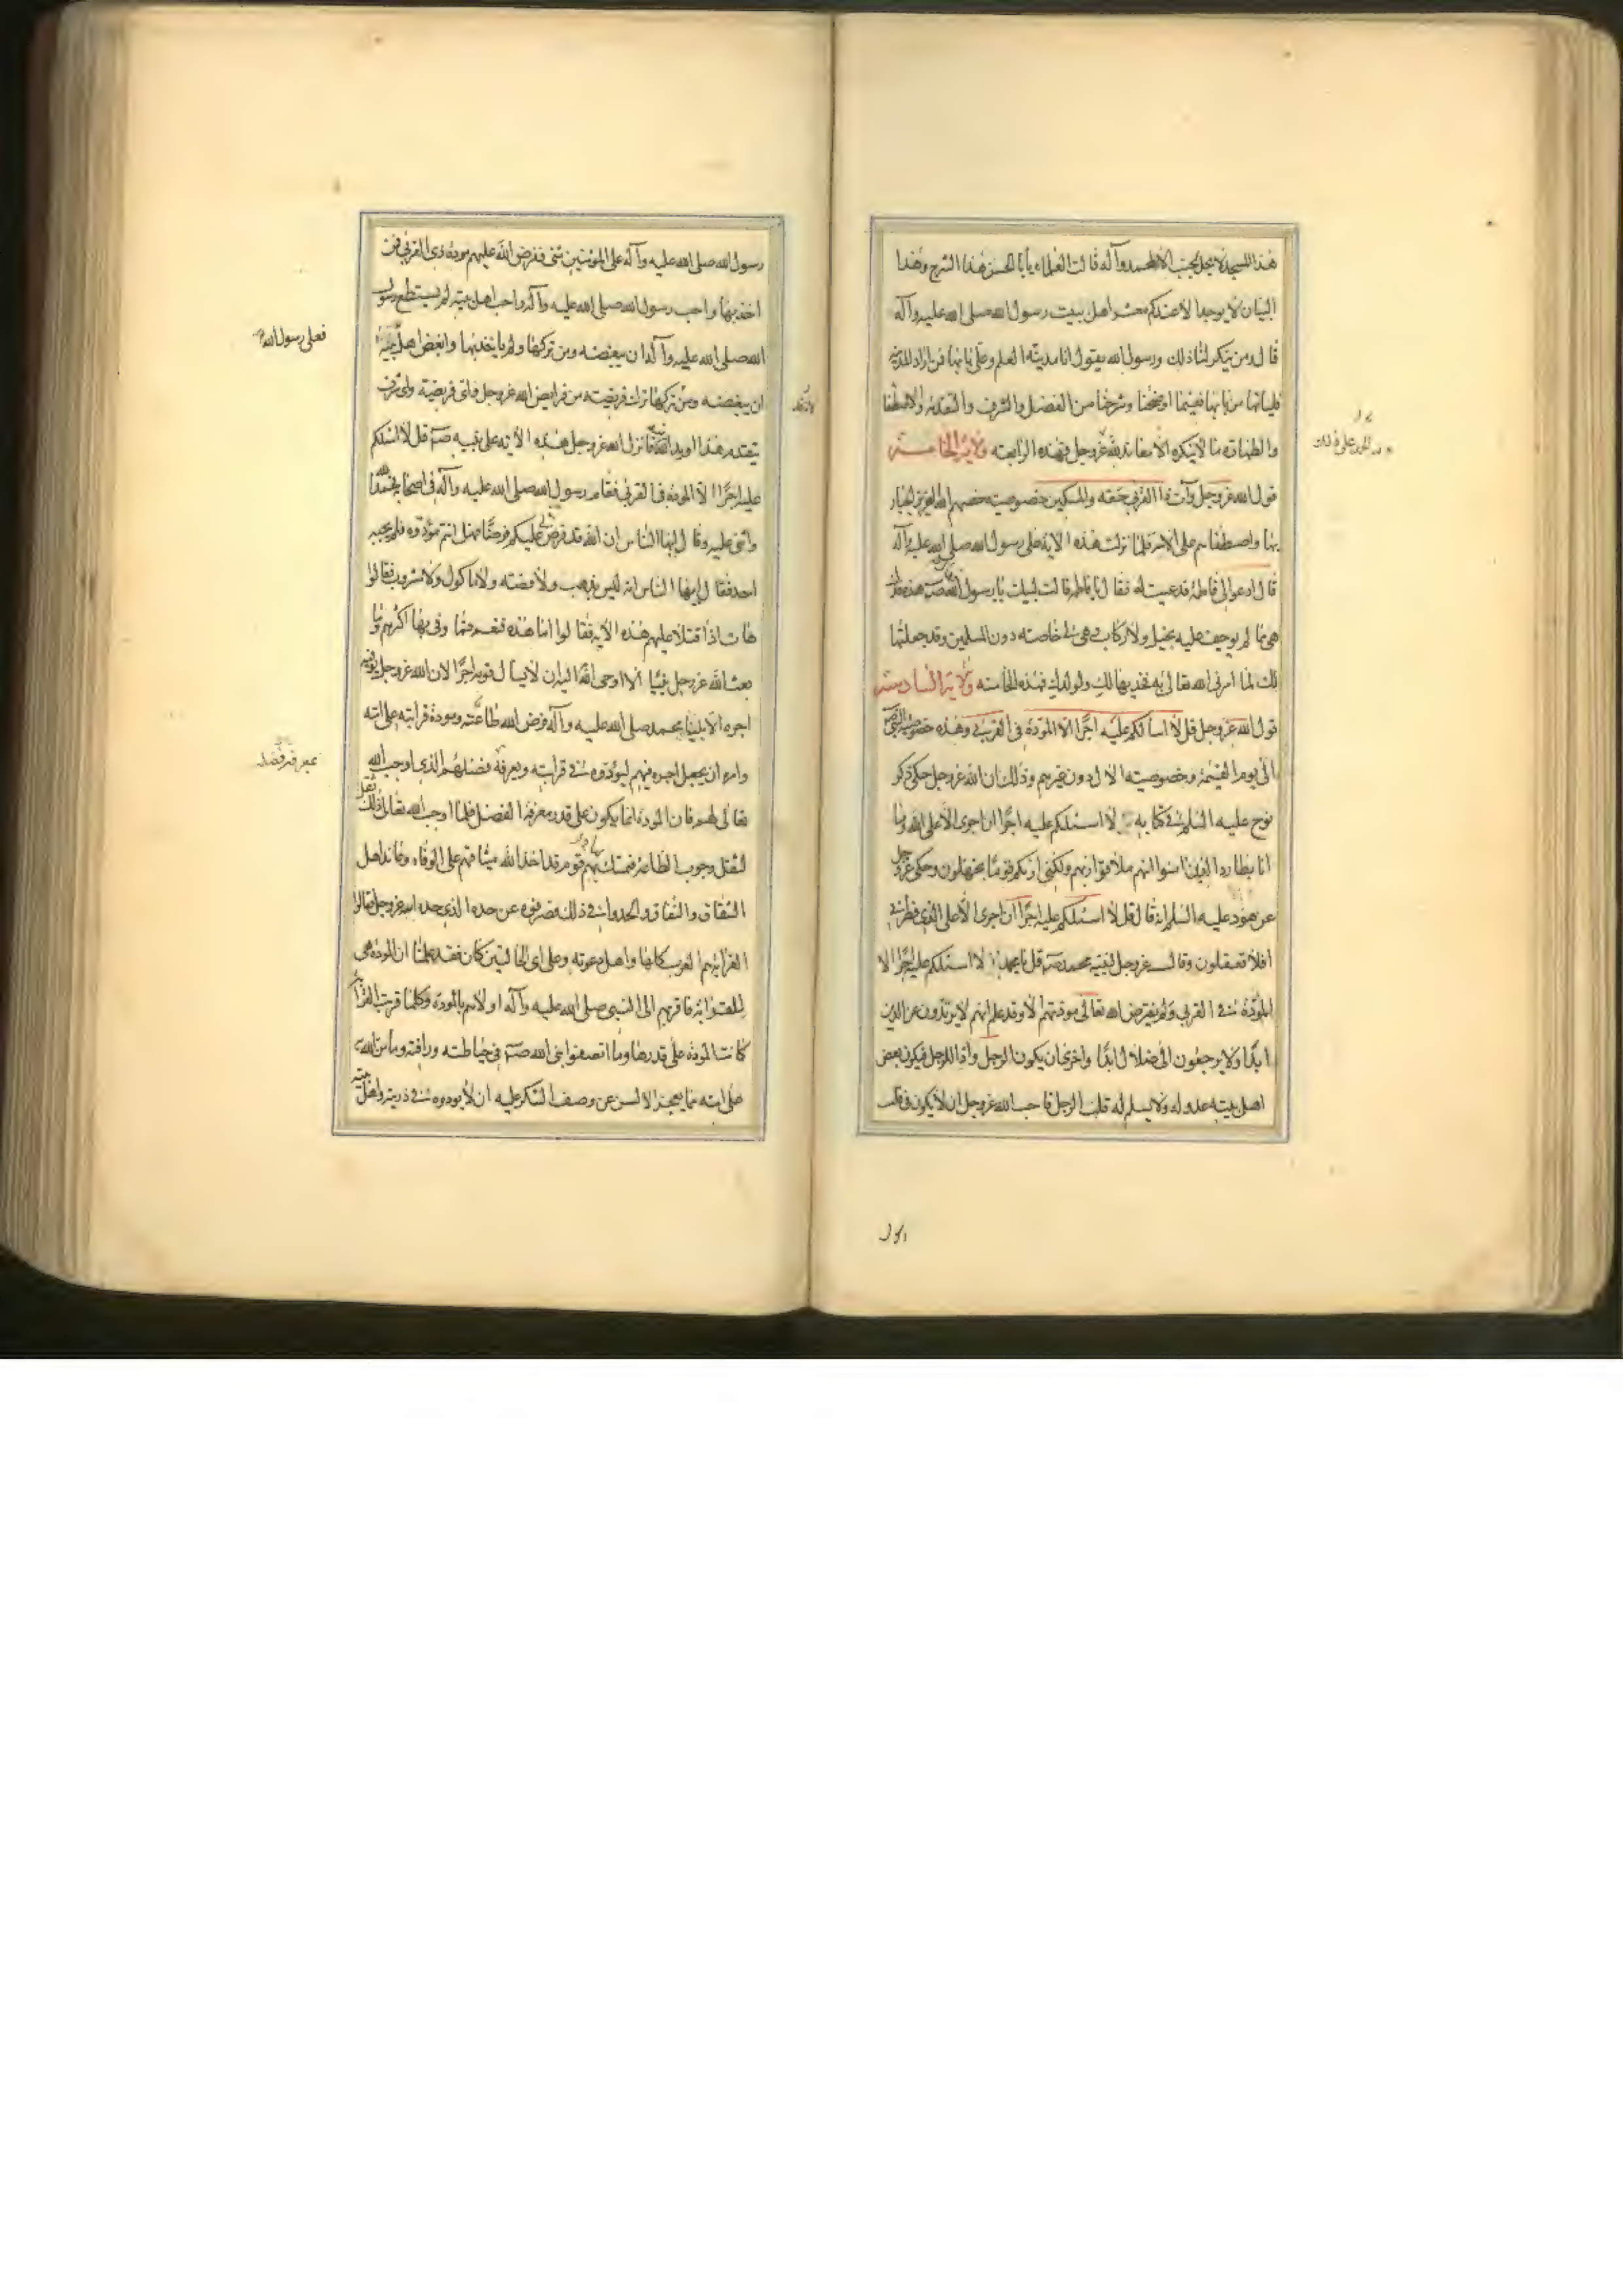 هذا المسجد لا يحل لجنب الا لمحمد وآله قالت العلماء يا أبا الحسن هذا الشرح وهذا
البيان لا يوجد الا عندكم معشر اهل بيت رسول الله صلى الله عليه وآله
قال ومن ينكر لنا ذلك ورسول الله يقول انا مدينة العلم وعلي بابها فمن اراد المدينة
فلياتها من بابها ففيما اوضحنا وشرحنا من الفضل والشرف والتقدمة والاصطفا
والطهارة ما لا ينكره الا معاند لله عز وجل فهذه الرابعة والآية الخامسة
قول الله عز وجل وآت ذا القربى حقه والمسكين خصوصية خصهم الله العزيز الجبار
بها واصطفاهم على الامة فلما نزلت هذه الاية على رسول الله صلى الله عليه وآله
قال ادعوا لي فاطمة فدعيت له فقال يا فاطمة قالت لبيك يا رسول الله فقال ص هذه فدك
هي مما لم يوجف عليه بخيل ولا ركاب هي لي خاصة دون المسلمين وقد جعلتها
لك لما امرني الله تعالى به فخذيها لك ولولدك فهذه الخامسة والآية السادسة
قول الله عز وجل قل لا اسألكم عليه اجرا الا المودة في القربى وهذه خصوصية النبي ص
الى يوم القيمة وخصوصيته الال دون غيرهم وذلك ان الله عز وجل حكى ذكر
نوح عليه السلم في كتابه لا اسئلكم عليه اجرا ان اجرى الا على الله وما
انا بطارد الذين امنوا انهم ملاقوا ربهم ولكني اريكم قوما تجهلون وحكى عز وجل
عن هود عليه السلم انه قال قل لا اسئلكم عليه اجرا ان اجرى الا على الذي فطرني
افلا تعقلون وقال عز وجل لنبيه محمد ص قل يا محمد لا اسئلكم عليه اجرا الا
المودة في القربى ولم يفترض الله تعالى مودتهم الا وقد علم انهم لا يرتدون عن الدين
ابدا ولا يرجعون الى ضلال ابدا واخرى ان يكون الرجل وادا للرجل فيكون بعض
اهل بيته عدو له ولا يسلم له قلب الرجل فاحب الله عز وجل ان لا يكون في قلب
رسول الله صلى الله عليه وآله على المؤمنين شئ ففرض الله عليهم مودة ذي القربى فمن
اخذ بها واحب رسول الله صلى الله عليه وآله واحب اهل بيته لم يستطع رسول
الله صلى الله عليه وآله ان يبغضه ومن تركها ولم يا يخذ بها وابغض اهل بيته
فعلى رسول الله
ان يبغضه ومن تركها ترك فريضة من فرايض الله عز وجل فاي فريضة واي شرف
يتقدم هذا او يدانيه فانزل الله عز وجل هذه الاية على نبيه ص قل لا اسئلكم
عليه اجرا الا المودة في القربى فقام رسول الله صلى الله عليه وآله في اصحابه فحمد الله
واثنى عليه وقال ايها الناس ان الله قد فرض لي عليكم فرضا فهل انتم مؤدوه فلم يجبه
احد فقال ايها الناس انه ليس بذهب ولا فضة ولا ماكول ولا مشروب فقالوا
هات اذا فتلا عليهم هذه الاية فقالوا اما هذه فنعم فما وفى بها اكثرهم وما
بعث الله عز وجل نبيا الا اوحى الله اليه ان لا يسال قومه اجرا لان الله عز وجل يوفيه
اجر الانبيا ومحمد صلى الله عليه وآله فرض الله طاعته ومودة قرابته على امته
وامره ان يجعل اجره فيهم ليؤدوه في قرابته ويعرفة فضلهم الذي اوجب الله
بمعرفة فضل
تعالى لهم فان المودة انما يكون على قدر معرفة الفضل فلما اوجب الله تعالى ذلك ثقل
لثقل وجوب الطاعة فتمسك بهم قوم قد اخذ الله ميثاقهم على الوفاء وعاند اهل
الشقاق والنفاق والحدوا في ذلك فصرفوه عن حده الذي حده الله عز وجل فقالوا
القرابة هم العرب كلها واهل دعوته وعلى اي الحالتين كان فقد علمنا ان المودة هي
للقرابة فاقربهم الى النبي صلى الله عليه وآله اولاهم بالمودة وكلما قربت القرابة
كانت المودة على قدرها وما انصفوا نبي الله ص في حياطته ورافته وما من الله به
على امته مما يعجز الالسن عن وصف الشكر عليه ان لا يودوه في ذريته واهل بيته